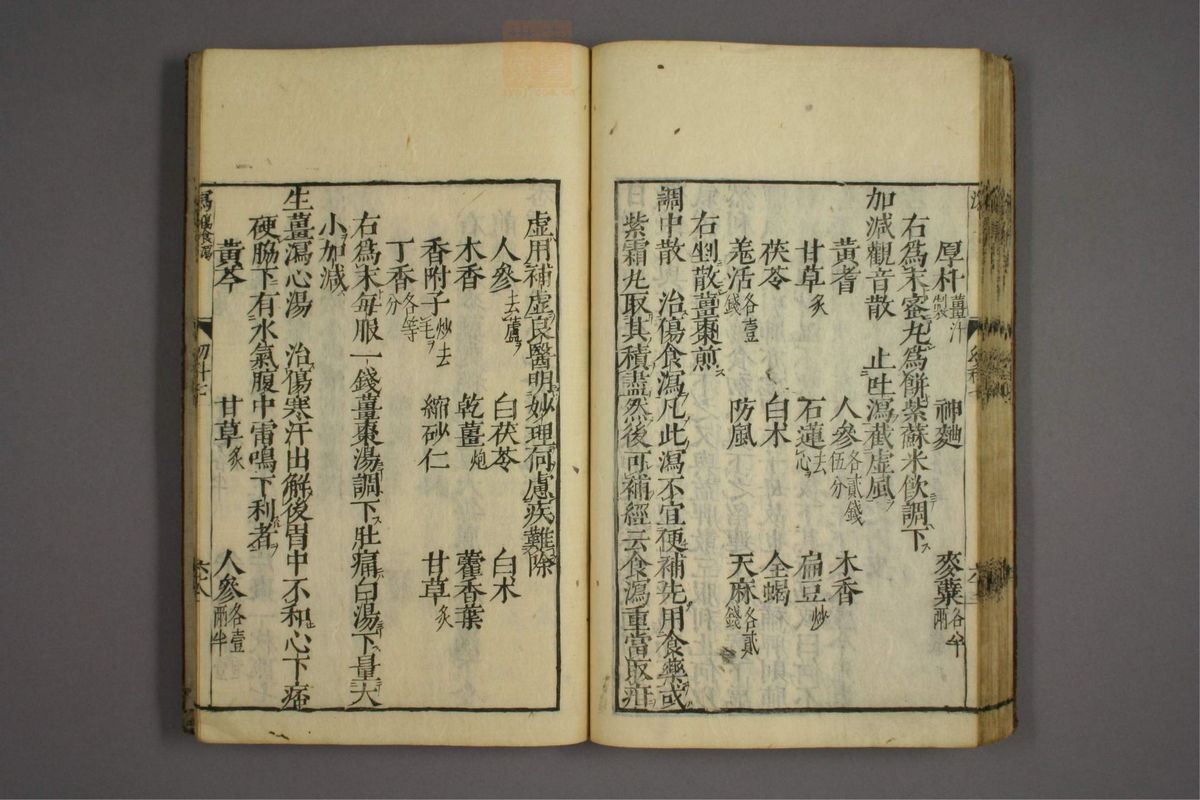 厚朴薑汁製 神麯 麥蘖各半兩
右爲末蜜丸爲餅紫蘇米飲調下
加減觀音散 止吐瀉截虛風
黃耆 人參各貳錢伍分 木香
甘草炙 石蓮去心 扁豆炒
茯苓 白朮 全蝎
羗活各壹錢 防風 天麻各貳錢
右剉散薑棗煎
調中散 治傷食瀉凡此瀉不宜便補先用食藥或
紫霜丸取其積盡然後可補經云食瀉重當取疳
虛用補虛良醫明妙理何慮疾難除
人參去蘆 白茯苓 白朮
木香 乾薑炮 藿香葉
香附子炒去毛 縮砂仁 甘草炙
丁香各等分
右爲末每服一錢薑棗湯調下肚痛白湯下量大
小加減
生薑瀉心湯 治傷寒汗出解後胃中不和心下痞
硬脇下有水氣腹中雷鳴下利者
黃芩 甘草炙 人參各壹兩半